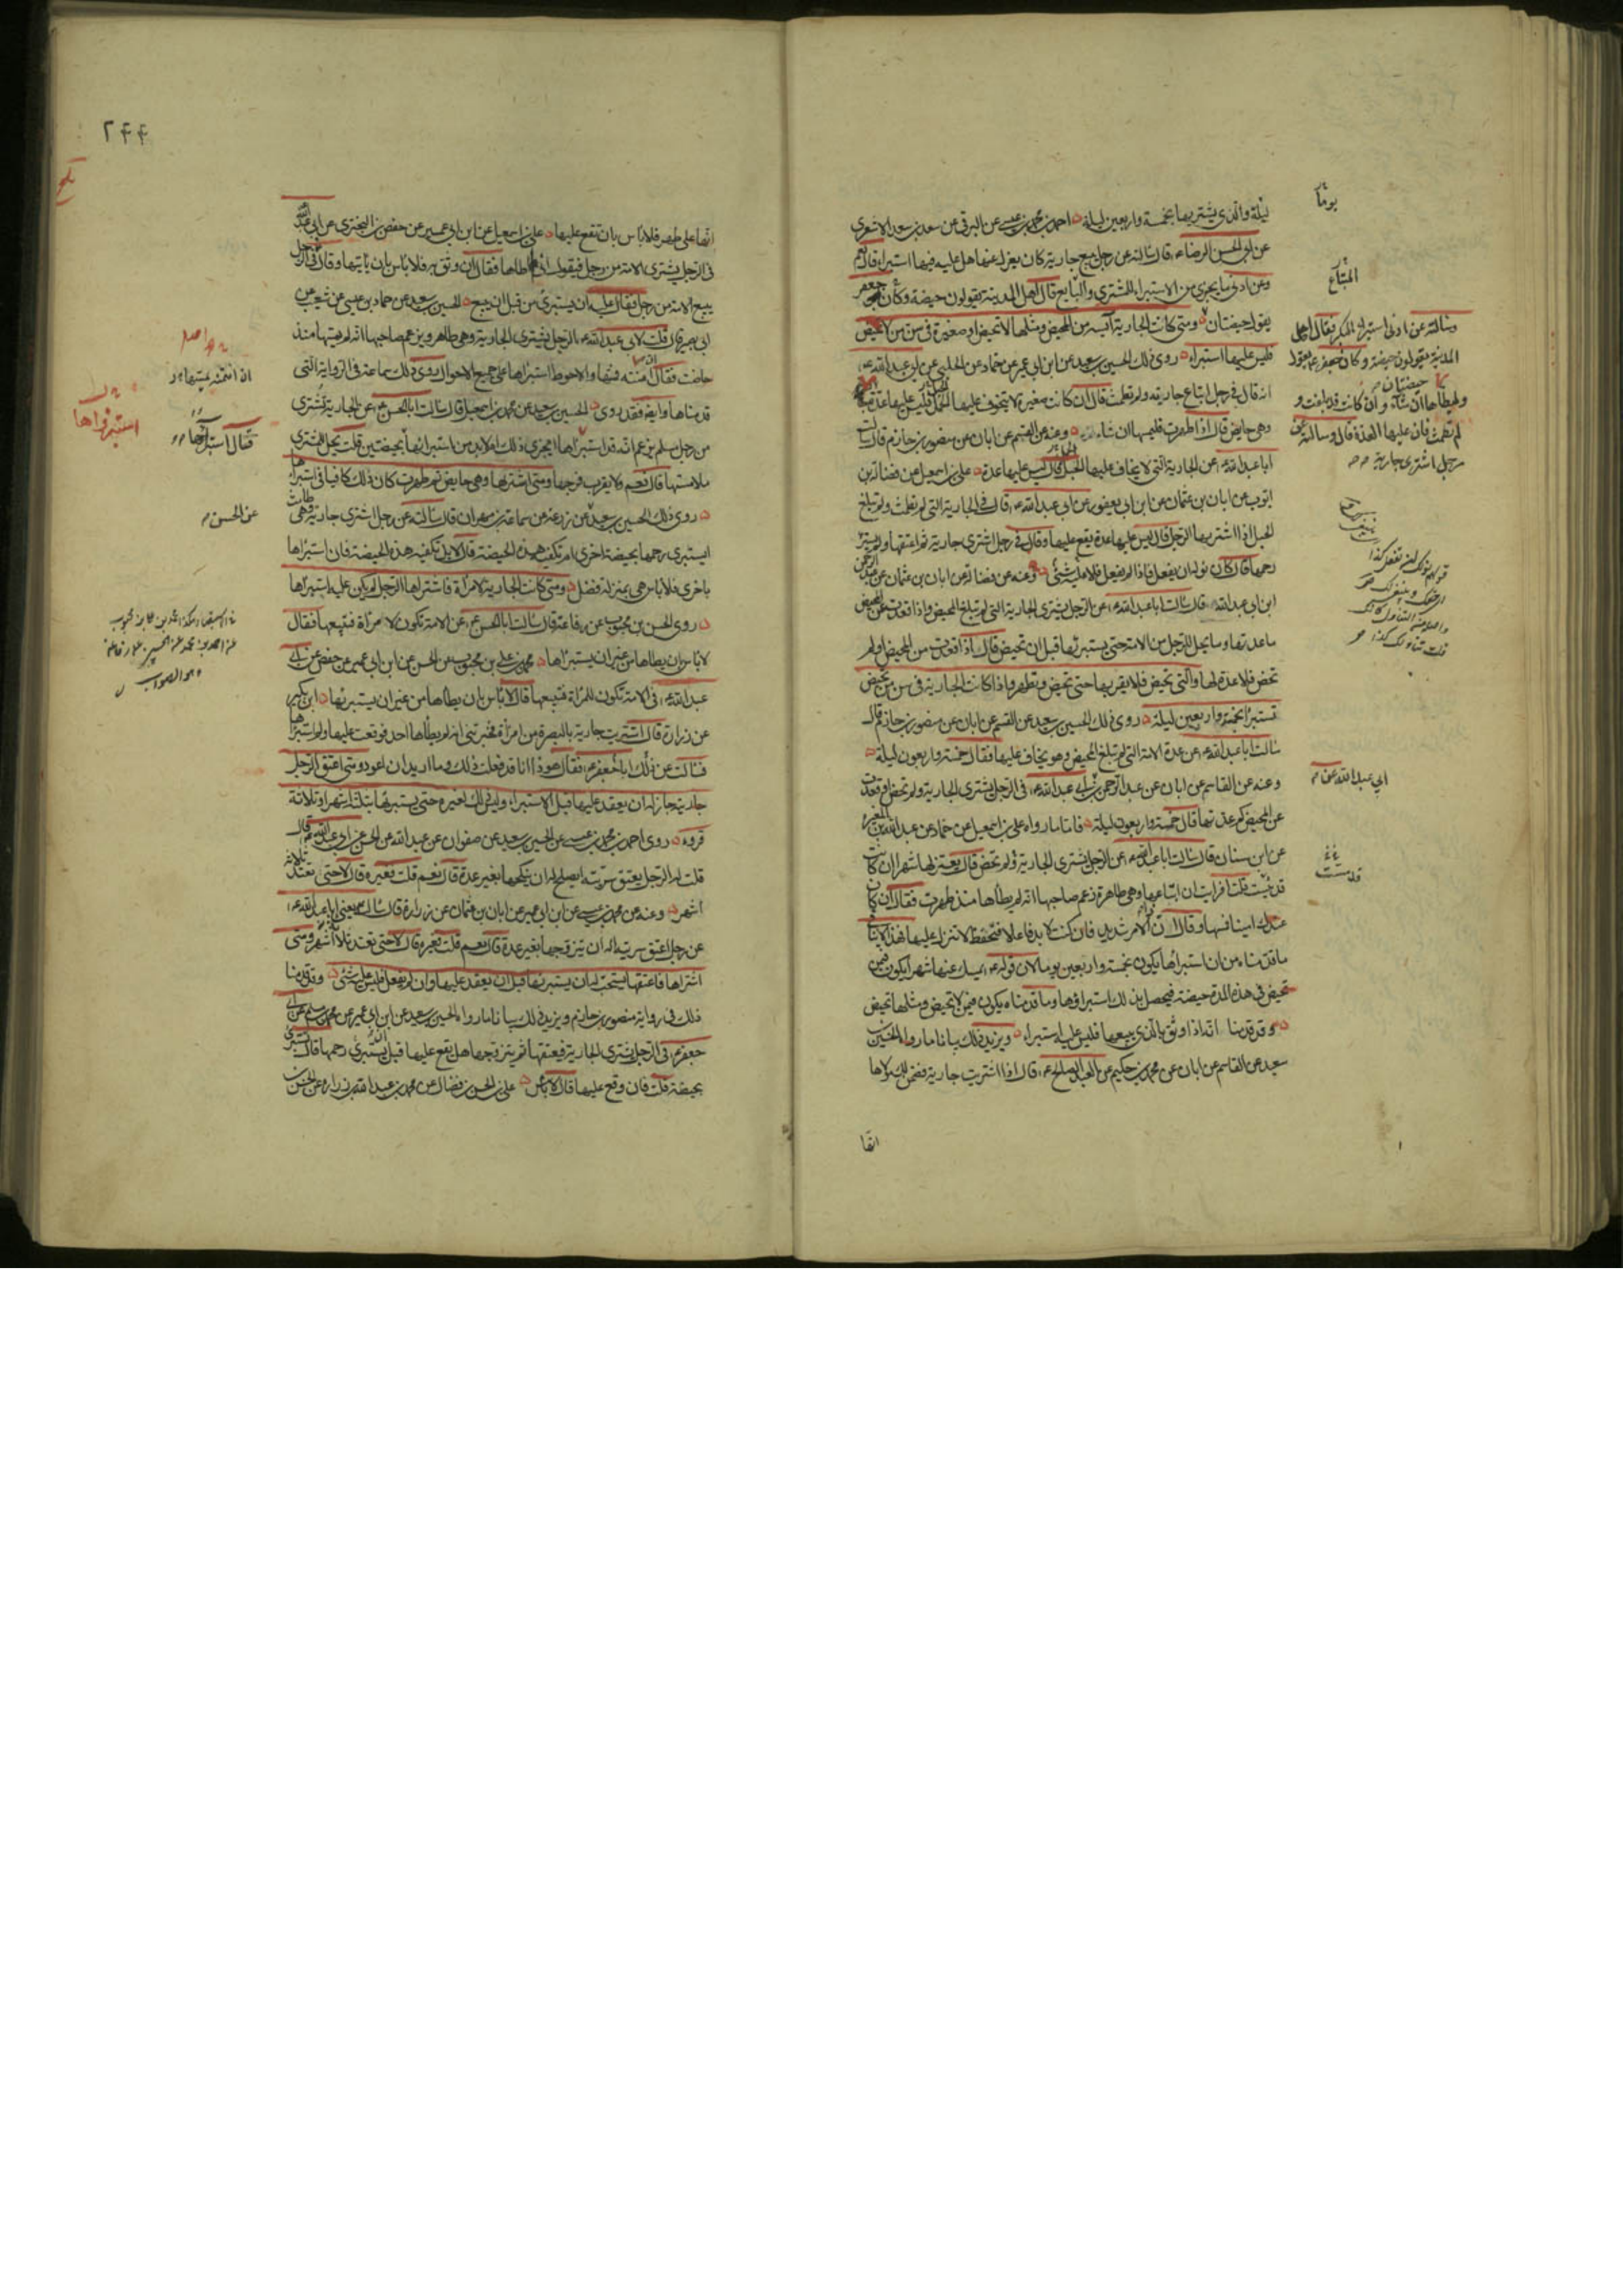 ليلة والذي يشتريها بخمسة واربعين ليلة احمد بن محمد بن عيسى عن البرقي عن سعد بن سعد الاشعري
عن ابي الحسن الرضا ع قال سالته عن رجل يبيع جارية كان يعزل عنها هل عليه فيها استبراء قال نعم
وعن ادنى ما يجزي من الاستبراء للمشتري والبايع قال اهل المدينة يقولون حيضة وكان جعفر
يقول حيضتان ومتى كانت الجارية آيسة من المحيض ومثلها لا تحيض او صغيرة في سن من لا تحيض
فليس عليها استبراء روى ذلك الحسين بن سعيد عن ابن ابي عمير عن حماد عن الحلبي عن ابي عبد الله ع
انه قال في رجل ابتاع جارية ولم تطمث قال ان كانت صغيرة لا يتخوف عليها الحبل فليس عليها عدة
وهي حايض قال اذا طهرت فليمسها ان شاء وعنه عن القسم عن ابان عن منصور بن حازم قال سالت
ابا عبد الله ع عن الجارية التي لا يخاف عليها الحبل قال ليس عليها عدة علي بن اسمعيل عن فضالة بن
ايوب عن ابان بن عثمان عن ابن ابي يعفور عن ابي عبد الله ع قال في الجارية التي لم تطمث ولم تبلغ
الحبل اذا اشتريها الرجل قال ليس عليها عدة يقع عليها وقال في رجل اشترى جارية ثم اعتقها ولم يستبرء
رحمها قال كان نوله ان يفعل فاذا لم يفعل فلا شيء وعنه عن فضالة عن ابان بن عثمان عن عبد الرحمن
ابن ابي عبد الله قال سالت ابا عبد الله ع عن الرجل يشتري الجارية التي لم تبلغ المحيض واذا قعدت عن المحيض
ما عدتها وما يحل للرجل من الامة حتى يستبرئها قبل ان تحيض قال اذا قعدت من المحيض او لم
تحض فلا عدة لها والتي تحيض فلا يقربها حتى تحيض وتطهر واذا كانت الجارية في سن من تحيض
تستبرأ بخمسة واربعين ليلة روى ذلك الحسين بن سعيد عن القسم عن ابان عن منصور بن حازم قال
سالت ابا عبد الله ع عن عدة الامة التي لم تبلغ المحيض وهو يخاف عليها فقال خمسة واربعون ليلة
وعنه عن القاسم عن ابان عن عبد الرحمن بن ابي عبد الله ع في الرجل يشتري الجارية ولم تحض او قعدت
عن المحيض كم عدتها قال خمسة واربعون ليلة فاما ما رواه علي بن اسمعيل عن حماد عن عبد الله بن المغيرة
عن ابن سنان قال سالت ابا عبد الله ع عن الرجل يشتري الجارية ولم تحض قال يعتزلها شهرا ان كانت
قد يئست قلت افرايت ان ابتاعها وهي طاهرة زعم صاحبها انه لم يطأها منذ طهرت فقال ان كان
عندك امينا فمسها وقال ان الامر شديد فان كنت لا بد فاعلا فتحفظ لا تنزل عليها فهذا لا ينافي
ما قدمناه من ان استبراءها يكون بخمسة واربعين يوما لان قوله ع يمسك عنها شهرا يكون فيمن
تحيض في هذه المدة حيضة فيحصل بذلك استبراؤها وما قدمناه يكون فيمن لا تحيض ومثلها تحيض
وقد قدمنا انه اذا وثق بالذي يبيعها فليس عليه استبراء ويزيد ذلك بيانا ما رواه الحسين بن
سعيد عن القاسم عن ابان عن محمد بن حكيم عن العبد الصالح ع قال اذا اشتريت جارية فضمن لك مولاها
انها
يوما
المبتاع
وسالته عن ادنى استبراء البكر فقال اهل
المدينة يقولون حيضة وكان جعفر ع يقول
حيضتان
يطأها ان شاء وان كانت قد بلغت و
لم تطمث فان عليها العدة قال وسالته عن
رجل اشترى جارية
ابي عبد الله عن
قد مست
٢٤٤
انها على طهر فلا باس بان تقع عليها علي بن اسمعيل عن ابن ابي عمير عن حفص بن البختري عن ابي عبد الله
في الرجل يشتري الامة من رجل فيقول اني لم اطأها فقال ان وثق به فلا باس بان ياتيها وقال في الرجل
يبيع الامة من رجل فقال عليه ان يستبرئ من قبل ان يبيع الحسين بن سعيد عن حماد بن عيسى عن شعيب عن
ابي بصير قال قلت لابي عبد الله ع الرجل يشتري الجارية وهي طاهر ويزعم صاحبها انه لم يمسها منذ
حاضت فقال ان امنته فمسها والاحوط استبراءها على جميع الاحوال روى ذلك سماعة في الرواية التي
قدمناها وايضا فقد روى الحسين بن سعيد عن محمد بن اسمعيل قال سالت ابا الحسن ع عن الجارية تشترى
من رجل مسلم يزعم انه قد استبرأها ايجزي ذلك ام لا بد من استبرائها بحيضتين قلت يحل للمشتري
ملامستها قال نعم ولا يقرب فرجها ومتى اشتراها وهي حايض ثم طهرت كان ذلك كافيا في استبراءها
روى ذلك الحسين بن سعيد عن زرعة عن سماعة بن مهران قال سالته عن رجل اشترى جارية وهي طامث
ايستبري رحمها بحيضة اخرى ام تكفيه هذه الحيضة قال لا بل تكفيه هذه الحيضة فان استبراها
باخرى فلا باس هي بمنزلة فضل ومتى كانت الجارية لامرأة فاشتراها الرجل لم يكن عليه استبراها
روى الحسن بن محبوب عن رفاعة قال سالت ابا الحسن ع عن الامة تكون لامرأة فتبيعها فقال
لا باس ان يطاها من غير ان يستبرأها محمد بن علي بن محبوب عن الحسن عن ابن ابي عمير عن حفص عن ابي
عبد الله ع في الامة تكون للمرأة فتبيعها قال لا باس بان يطاها من غير ان يستبرئها ابن بكير
عن زرارة قال اشتريت جارية بالبصرة من امرأة فخبرتني انه لم يطأها احد فوقعت عليها ولم استبرأها
فسالت عن ذلك ابا جعفر ع فقال هوذا انا قد فعلت ذلك وما اريد ان اعود ومتى اعتق الرجل
جاريته جاز له ان يعقد عليها قبل الاستبراء وليس ذلك لغيره حتى يستبرئها بثلثة اشهر او ثلاثة
قروء روى احمد بن محمد بن عيسى عن الحسين بن سعيد عن صفوان عن عبد الله عن الحسن عن ابي عبد الله ع قال
قلت له الرجل يعتق سريته ايصلح له ان ينكحها بغير عدة قال نعم قلت فغيره قال لا حتى تعتد ثلاثة
اشهر وعنه عن محمد بن عيسى عن ابن ابي عمير عن ابان بن عثمان عن زرارة قال سالته يعني ابا عبد الله ع
عن رجل اعتق سريته اله ان يتزوجها بغير عدة قال نعم قلت فغيره قال لا حتى تعتد ثلاثة اشهر ومتى
اشتراها فاعتقها يستحب له ان يستبرئها قبل ان يعقد عليها وان لم يفعل فليس عليه شيء وقد قدمنا
ذلك في رواية منصور بن حازم ويزيد ذلك بيانا ما رواه الحسين بن سعيد عن ابن ابي عمير عن محمد بن مسلم عن ابي
جعفر ع في الرجل يشتري الجارية فيعتقها ثم يتزوجها هل يقع عليها قبل ان يستبرئ رحمها قال يستبرئ
بحيضة قلت فان وقع عليها قال لا باس علي بن الحسن بن فضال عن محمد بن عبد الله بن زرارة عن الحسن بن
استبرؤاها
فقال استبراؤها
عن الحسن
وهو الصواب